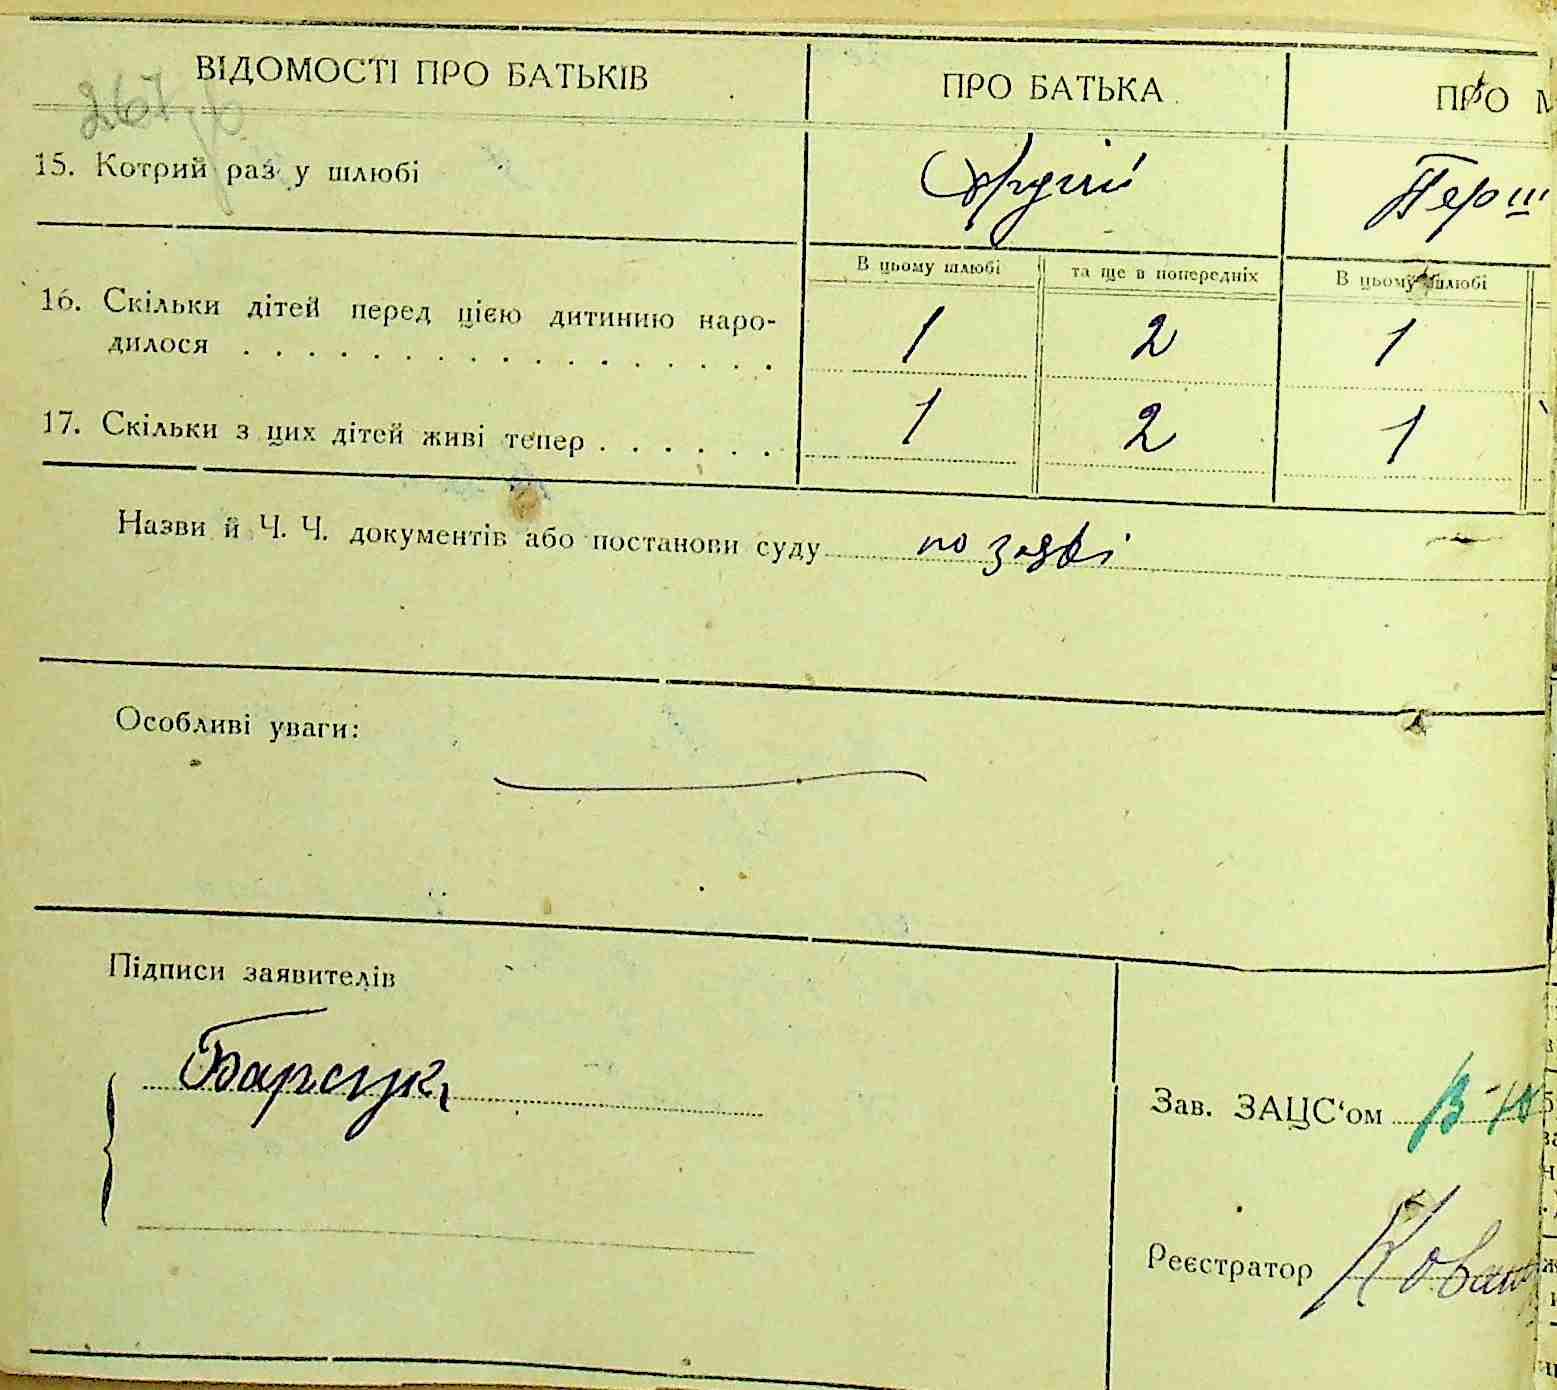 ВІДОМОСТІ ПРО БАТЬКІВ ПРО БАТЬКА ПРО М
267
15. Котрий раз у шлюбі Другий Перш
В цьому шлюбі та ще в попередніх В цьому шлюбі
16. Скільки дітей перед цією дитиною наро-
дилося . . . . . . . . . . . . . . . . . 1 2 1
17. Скільки з цих дітей живі тепер . . . . . . 1 2 1
Назви й Ч. Ч. документів або постанови суду по заяві
Особливі уваги:
Підписи заявителів
Барсук
Зав. ЗАЦС‘ом
Реєстратор Кова